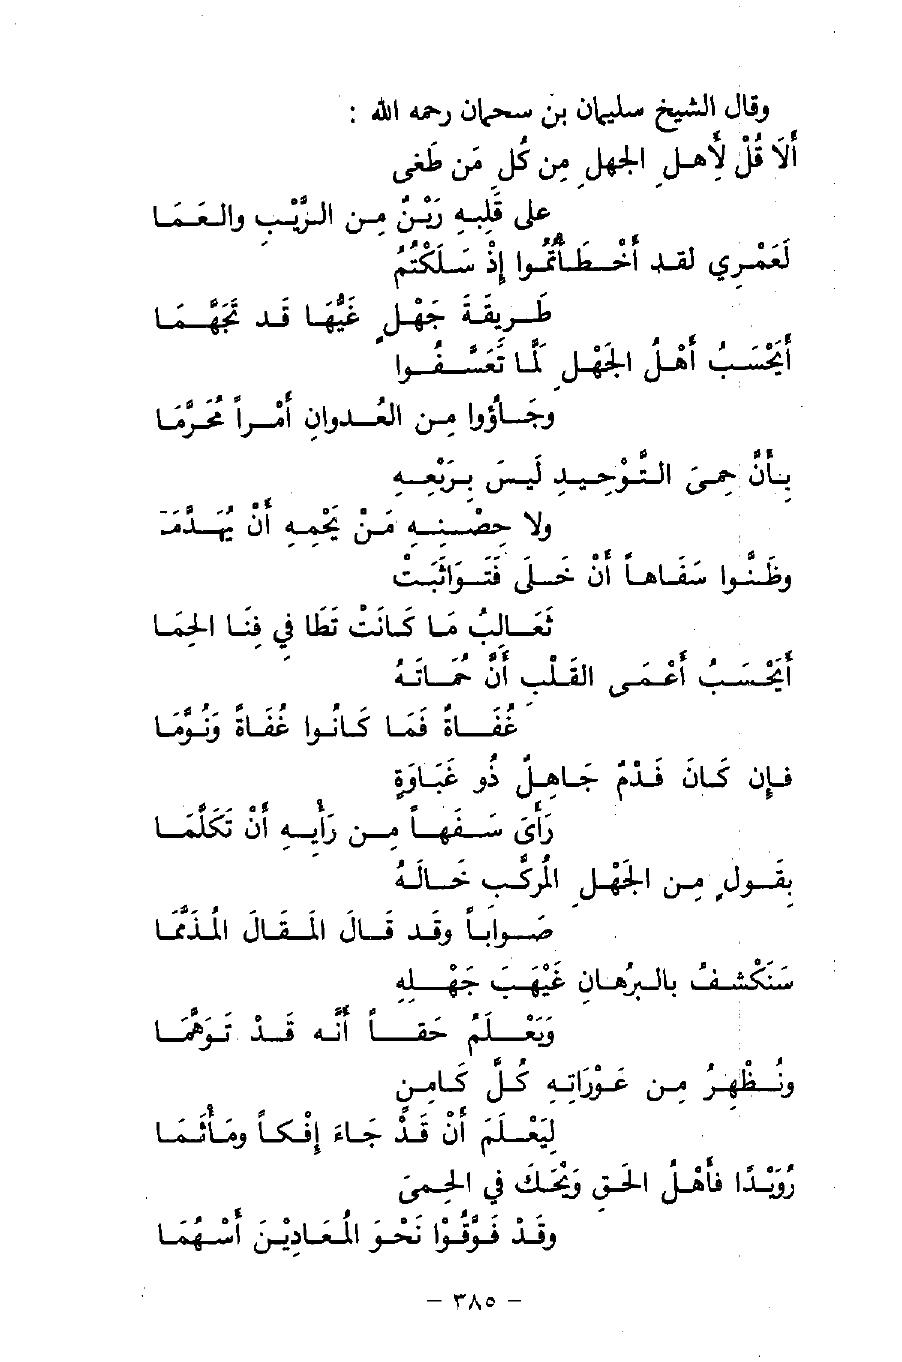 وقال الشيخ سليمان بن سحمان رحمه الله :
أَلَا قُلْ لِأَهلِ الجهلِ مِن كُلِ مَن طَغى
على قَلِبهِ رَيْنٌ مِن الرَّيْبِ والعَمَا
لَعَمْرِي لقد أَخْطَأْتُمُوا إِذْ سَلَكْتُمُ
طَرِيقَةَ جَهْلٍ غَيُّهَا قَد تَجَهَّمَا
أَيَحْسَبُ أَهْلُ الجَهْلِ لَمَّا تَعَسَّفُوا
وجَاؤوا مِن العُدوانِ أَمْراً مُحَرَّمَا
بِأَنَّ حِمىَ التَّوْحِيدِ لَيسَ بِرَبْعِهِ
ولا حِصْنِهِ مَنْ يَحْمِهِ أَنْ يُهَدَّمَـ
وظَنُّوا سَفَاهاً أَنْ خَلَى فَتَوَاثَبَتْ
ثَعَالبُ مَا كَانَتْ تَطَا في فِنَا الحِمَا
أَيَحْسَبُ أَعْمَى القَلْبِ أَنَّ حُمَاتَهُ
غُفَاةٌ فَمَا كَانُوا غُفَاةً وَنُوَّمَا
فإِن كَانَ فَدْمٌ جَاهِلٌ ذُو غَبَاوَةٍ
رَأَىَ سَفَهاً مِن رَأْيِهِ أَنْ تَكَلَّمَا
بِقَولٍ مِن الجَهْلِ المُركَّبِ خَالَهُ
صَواباً وقَد قَالَ المَقَالَ المُذَمَّمَا
سَنَكْشفُ بالبُرْهَانِ غَيْهَبَ جَهْلِهِ
وَيَعْلَمُ حَقاً أَنَّه قَدْ تَوَهَّمَا
ونُظْهِرُ مِن عَوْرَاتِهِ كُلَّ كَامِنٍ
لِيَعْلَمَ أَنْ قَدْ جَاءَ إِفْكاً ومَأْثَمَا
رُوَيْدًا فأَهْلُ الحَقِ وَيْحَكَ في الحِمىَ
وقَدْ فَوَّقُوْا نَحْوَ المُعَادِيْنَ أَسْهُمَا
– ٣٨٥ –